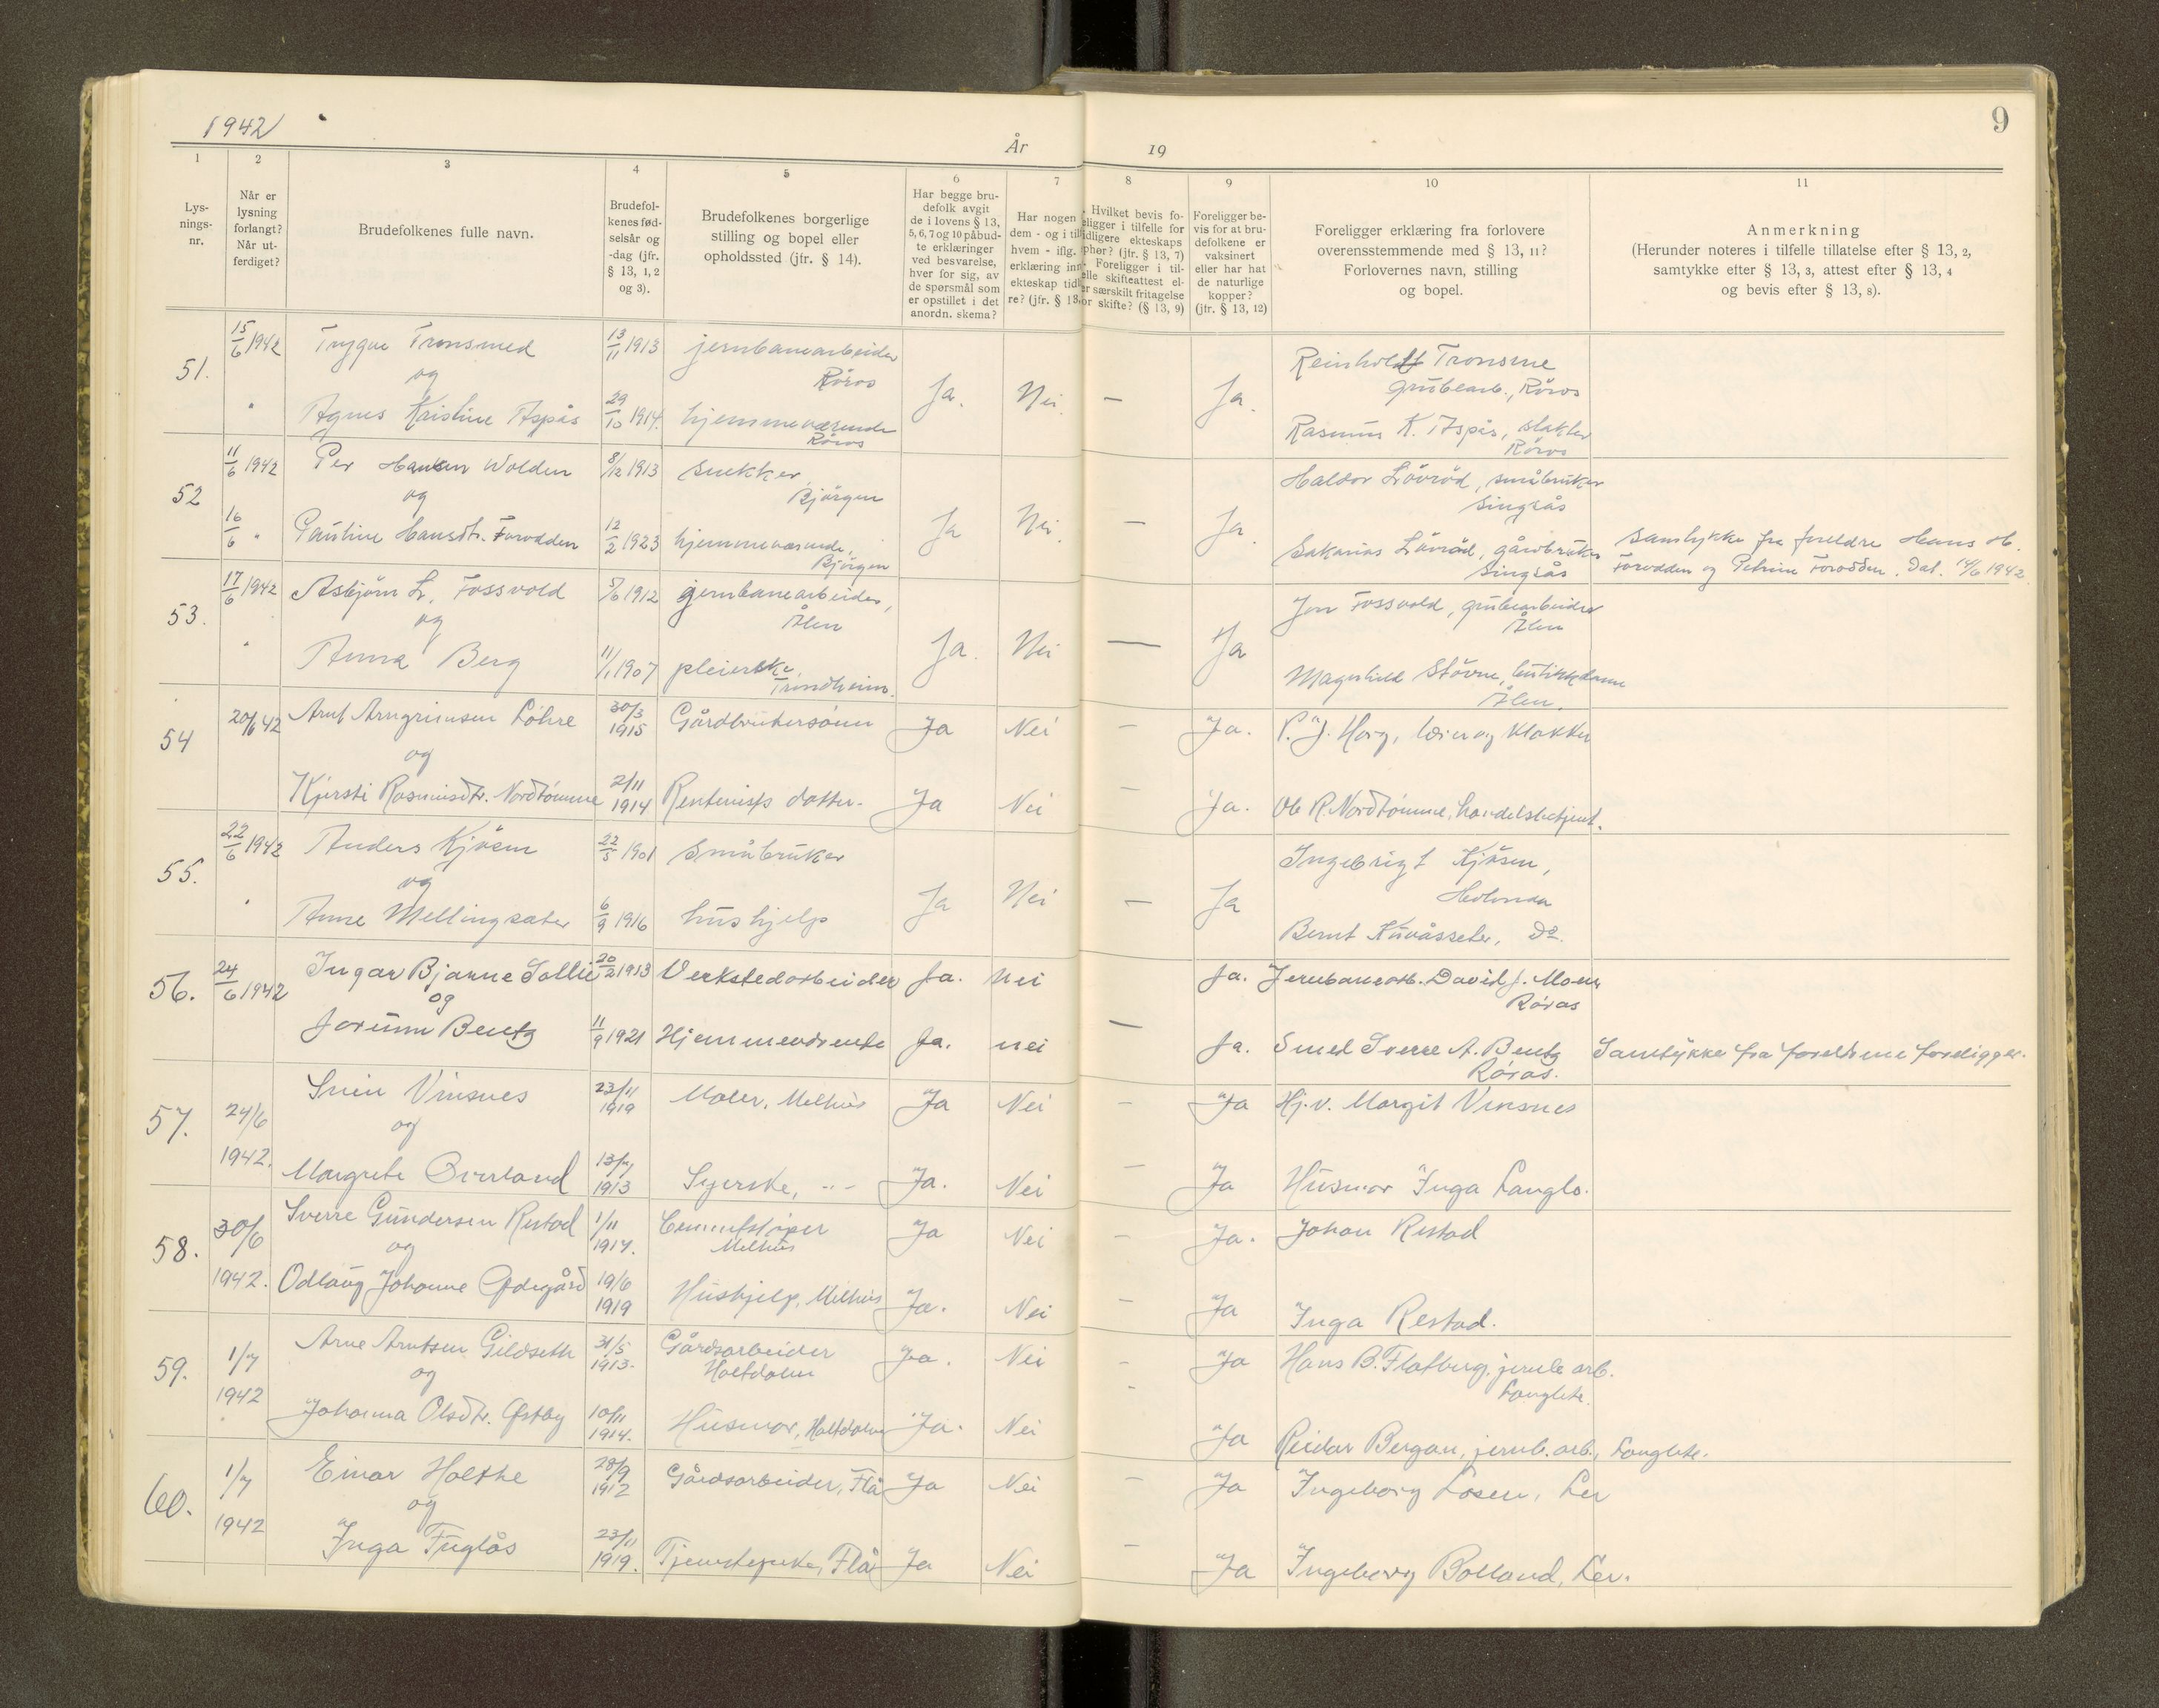 1942
År
19
9
1
2
3
4
5
6
7
8
9
10
11
Lys-
nings-
nr.
Når er
lysning
forlangt?
Når ut-
ferdiget?
Brudefolkenes fulle navn.
Brudefol-
kenes fød-
selsår og
-dag (jfr.
§ 13, 1, 2
og 3).
Brudefolkenes borgerlige
stilling og bopel eller
opholdssted (jfr. § 14).
Har begge bru-
defolk avgit
de i lovens § 13,
5, 6, 7 og 10 påbud-
te erklæringer
ved besvarelse,
hver for sig, av
de spørsmål som
er opstillet i det
anordn. skema?
Har nogen
dem - og i til
hvem - iflg.
erklæring inn
ekteskap tidl
re? (jfr. § 13,
Hvilket bevis fo-
eligger i tilfelle for
idligere ekteskaps
pher? (jfr. § 13, 7)
Foreligger i til-
elle skifteattest el-
er særskilt fritagelse
or skifte? (§ 13, 9)
Foreligger be-
vis for at bru-
defolkene er
vaksinert
eller har hat
de naturlige
kopper?
(jfr. § 13, 12)
Foreligger erklæring fra forlovere
overensstemmende med § 13, 11?
Forlovernes navn, stilling
og bopel.
Anmerkning
(Herunder noteres i tilfelle tillatelse efter § 13, 2,
samtykke efter § 13, 3, attest efter § 13, 4
og bevis efter § 13, 8).
51.
15/6 1942 Trygve Tronsmed 13/11 1913 jernbanearbeider
Röros
og
Agnes Kristine Aspås 29/10 1914. hjemmeværende
Röros
Ja. Nei. — Ja.
Reinholdt Tronsme
grubearb., Röros
Rasmus K. Aspås, slakter
Röros
52
11/6 1942 Per Hansen Wolden 8/12 1913 snekker
Bjørgen
og
16/6 " Pauline Hansdtr. Forodden 12/2 1923 hjemmeværende,
Bjørgen
Ja Nei. — Ja.
Haldor Lövröd, småbruker
Singsås
Sakarias Lövröd, gårdbruker
Singsås
Samtykke fra foreldre Hans H.
Forodden og Petrine Forodden. Dat. 14/6 1942.
53.
17/6 1942 Asbjörn L. Fossvold 5/6 1912 jernbanearbeider,
Ålen
og
" Anna Berg 11/1 1907 pleierske,
Trondheim.
Ja. Nei — Ja
Jon Fossvold, grubearbeider
Ålen
Magnhild Stövne, butikkdame
Ålen.
54
20/6 42 Arnt Arngrimsen Löhre 30/3 1915 Gårdbrukersönn Ja Nei — Ja. P. J. Horg, lærer og klokker
og
Kjersti Rasmusdtr. Nordtömme 2/11 1914 Rentenists datter. Ja Nei — Ja. Ole R. Nordtömme, handelsbetjent.
55.
22/6 1942 Anders Kjösen 22/5 1901 Småbruker
og
" Anne Mellingsæter 6/9 1916 hushjelp
Ja Nei — Ja
Ingebrigt Kjösen,
Hölonda
Bernt Kuvåsseter, Do.
56.
24/6 1942 Ingar Bjarne Sollie 20/2 1913 Verkstedarbeider Ja. nei Ja. Jernbanearb. David J. Moen
Röros
og
Jorunn Bentz 11/9 1921 Hjemmeværende Ja. nei — Ja. Smed Sverre A. Bentz
Röros.
Samtykke fra foreldrene foreligger.
57.
24/6 1942. Svein Vinsnes 23/11 1919 Maler, Melhus Ja Nei — Ja Hj.v. Margit Vinsnes
og
Margrete Överland 13/7 1913 Syerske, -"- Ja. Nei — Ja Husmor Inga Langlo.
58.
30/6 1942. Sverre Gundersen Restad 1/11 1914. Cementstöper
Melhus
Ja Nei — Ja. Johan Restad
og
Odlaug Johanne Ødegård 19/6 1919 Hushjelp, Melhus Ja. Nei — Ja Inga Restad.
59.
1/7 1942 Arne Arntsen Gildseth 31/5 1913. Gårdsarbeider
Holtdalen
Ja. Nei — Ja Hans B. Flatberg, jernb. arb.
Langlete.
og
Johanna Olsdtr. Østby 10/11 1914. Husmor, Holtdalen Ja. Nei — Ja Reidar Bergan, jernb. arb., Langlete.
60.
1/7 1942 Einar Holthe 28/9 1912 Gårdsarbeider, Flå Ja Nei — Ja Ingeborg Losen, Ler
og
Inga Fuglås 23/11 1919. Tjenestepike, Flå Ja Nei — Ja Ingeborg Bolland, Ler.